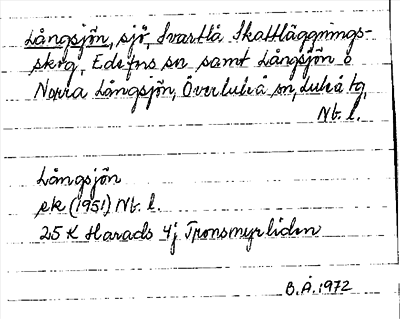 Långsjön, sjö, Svartlå Skattläggnings-
skog, Edefors sn samt Långsjön o
Norra Långsjön, Överluleå sn, Luleå tg,
Nb. l.
Långsjön
ek (1951) Nb. l.
25 K Harads 4j Tronsmyrliden
B.Å. 1972